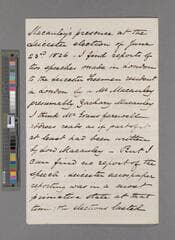 Macaulay's presence at the
Leicester election of June
23rd 1826 - I find reports of
two speeches made in London
to the Leicester Freemen resident
in London by a Mr Macaulay
presumably Zachary Macaulay
I think Mr Evans farewell
address reads as if part of it
at least had been written
by Lord Macaulay - But I
can find no report of the
speech Leicester newspaper
reporting was in a most
primitive state at that
time the elections lasted